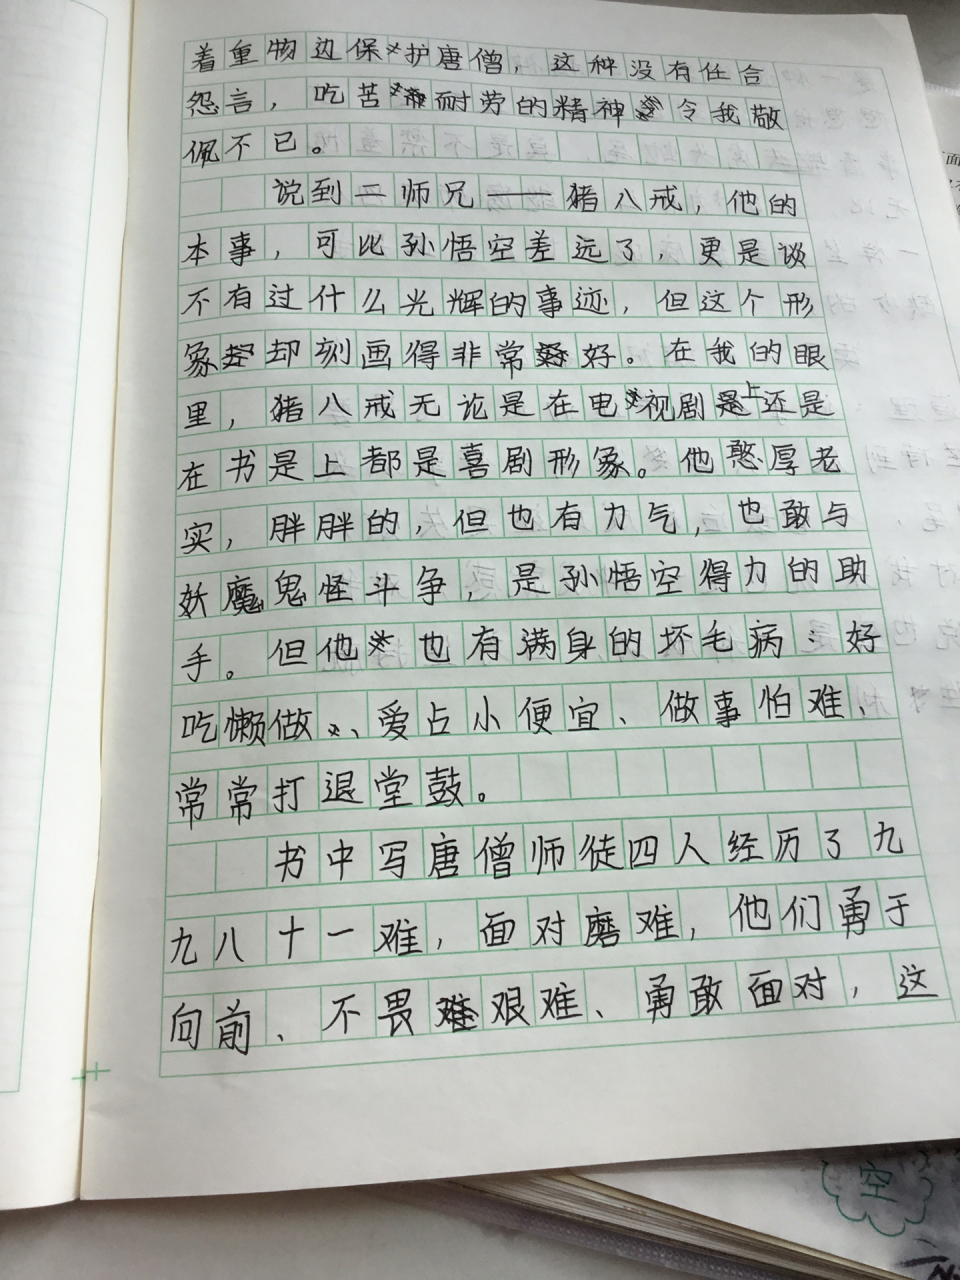 着重物边保护唐僧，这种没有任合
怨言，吃苦耐劳的精神令我敬
佩不已。
说到二师兄——猪八戒，他的
本事，可比孙悟空差远了，更是谈
不有过什么光辉的事迹，但这个形
象却刻画得非常好。在我的眼
里，猪八戒无论是在电视剧上还是
在书是上都是喜剧形象。他憨厚老
实，胖胖的，但也有力气，也敢与
妖魔鬼怪斗争，是孙悟空得力的助
手。但他也有满身的坏毛病：好
吃懒做、爱占小便宜、做事怕难、
常常打退堂鼓。
书中写唐僧师徒四人经历了九
九八十一难，面对磨难，他们勇于
向前、不畏艰难、勇敢面对，这
空